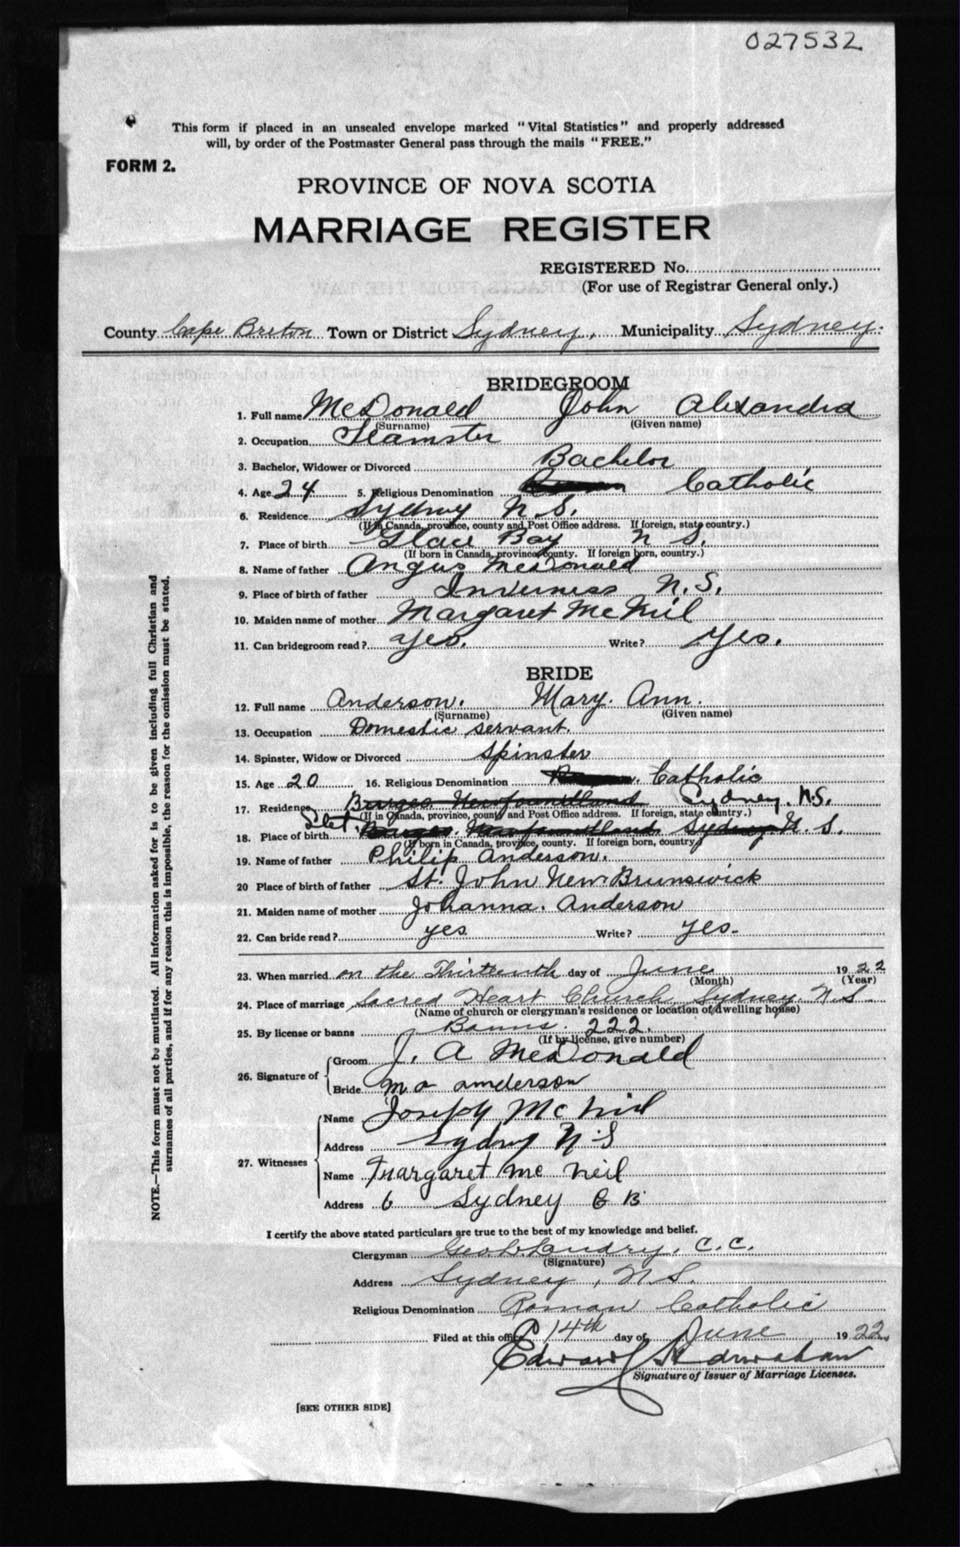 027532
This form if placed in an unsealed envelope marked "Vital Statistics" and properly addressed
will, by order of the Postmaster General pass through the mails "FREE."
FORM 2.
PROVINCE OF NOVA SCOTIA
MARRIAGE REGISTER
REGISTERED No.
(For use of Registrar General only.)
County Cape Breton Town or District Sydney, Municipality Sydney.
BRIDEGROOM
1. Full name McDonald John Alexandra
(Surname) (Given name)
2. Occupation Teamster
3. Bachelor, Widower or Divorced Bachelor
4. Age 24 5. Religious Denomination Catholic
6. Residence Sydney N.S.
(If in Canada, province, county and Post Office address. If foreign, state country.)
7. Place of birth Glace Bay N S.
(If born in Canada, province, county. If foreign born, country.)
8. Name of father Angus McDonald
9. Place of birth of father Inverness N.S.
10. Maiden name of mother Margaret McNeil
11. Can bridegroom read? yes. Write? yes.
BRIDE
12. Full name Anderson. Mary. Ann.
(Surname) (Given name)
13. Occupation Domestic servant.
14. Spinster, Widow or Divorced Spinster
15. Age 20 16. Religious Denomination Roman. Catholic
17. Residence Burgeo Newfoundland Sydney. N.S.
(If in Canada, province, county and Post Office address. If foreign, state country.)
Stet.
18. Place of birth Burgeo. Newfoundland Sydney N. S.
(If born in Canada, province, county. If foreign born, country.)
19. Name of father Philip Anderson.
20 Place of birth of father St. John New Brunswick
21. Maiden name of mother Johanna. Anderson
22. Can bride read? yes Write? yes.
23. When married on the Thirteenth day of June 1922
(Month) (Year)
24. Place of marriage Sacred Heart Church, Sydney N.S.
(Name of church or clergyman's residence or location of dwelling house)
25. By license or banns Banns. 222.
(If by license, give number)
26. Signature of
Groom J. A McDonald
Bride M a anderson
27. Witnesses
Name Joseph McNeil
Address Sydney N.S
Name Margaret Mc Neil
Address 6 Sydney C B
I certify the above stated particulars are true to the best of my knowledge and belief.
Clergyman Geo Landry, C.C.
(Signature)
Address Sydney, N.S.
Religious Denomination Roman Catholic
Filed at this office 14th day of June 1922
Edward
Signature of Issuer of Marriage Licenses.
[SEE OTHER SIDE]
NOTE.—This form must not be mutilated. All information asked for is to be given including full Christian and
surnames of all parties, and if for any reason this is impossible, the reason for the omission must be stated.